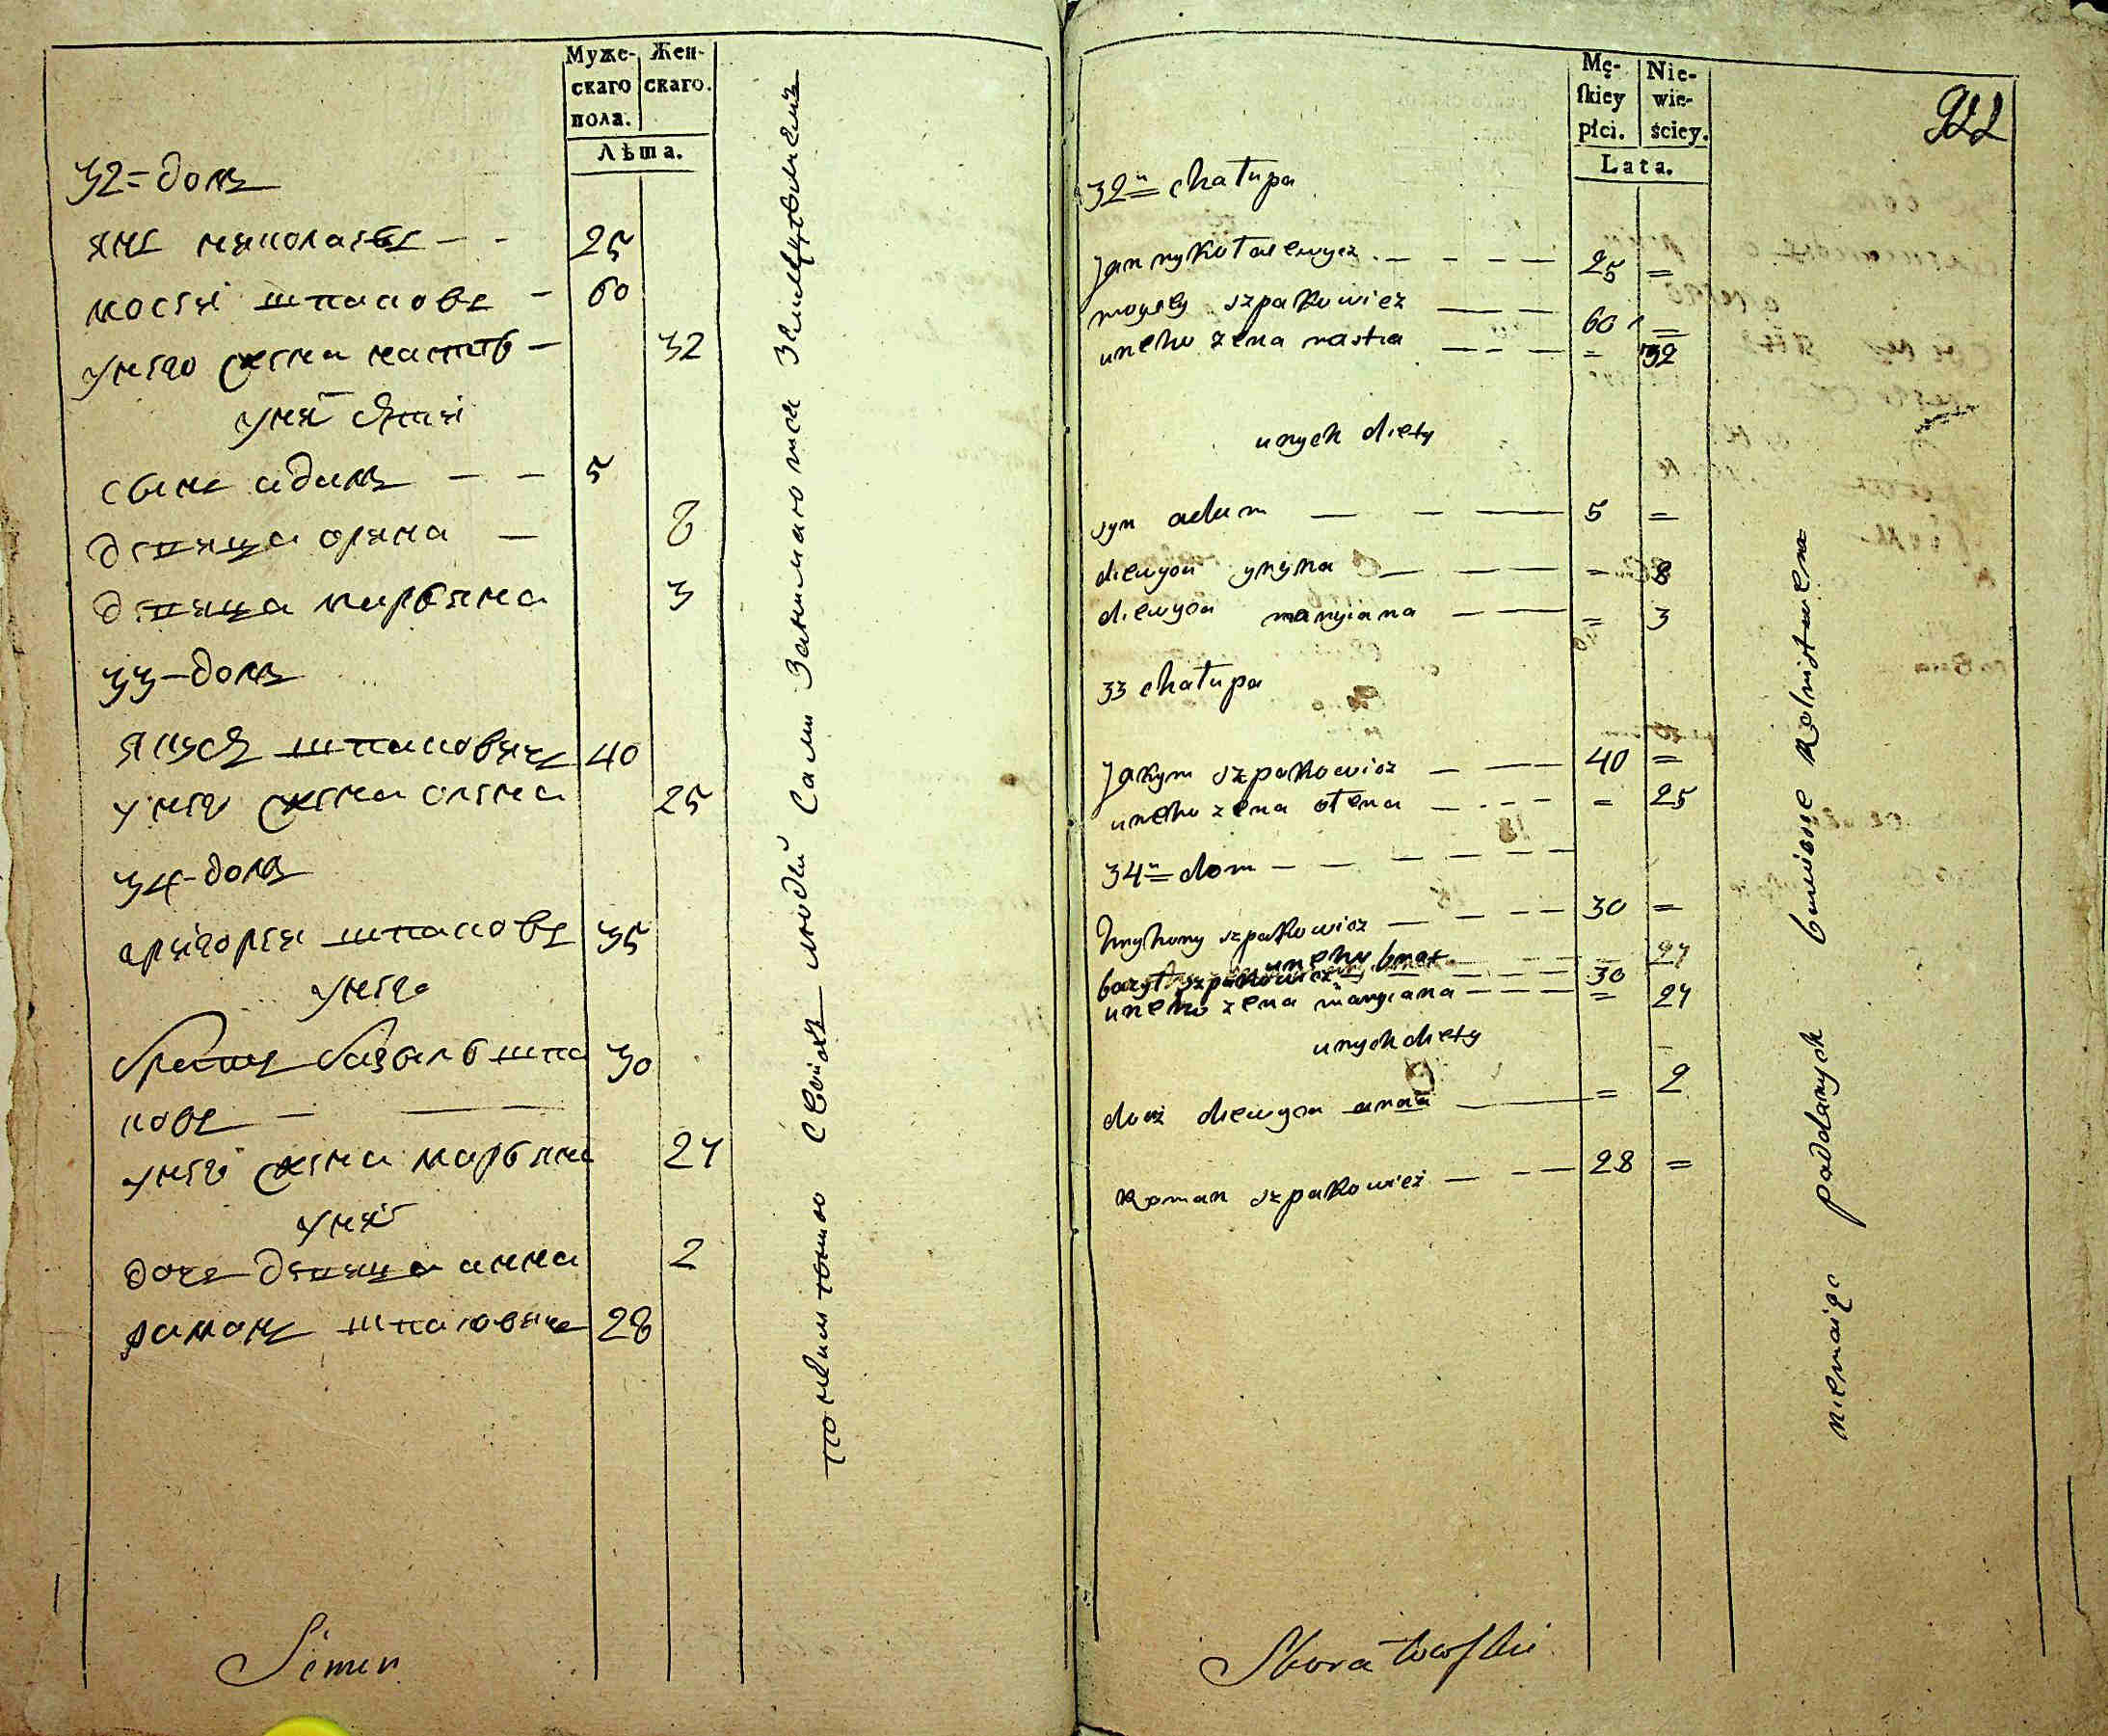 Муже-
скаго
пола.
Жен-
скаго.
Лѣта.
32=домъ
янъ николаевъ - - 25
мосѣй шпаковъ - 60
унего жена настя - 32
унихъ дѣти
сынъ адамъ - - 5
девица орина - 8
девица марьяна 3
33-домъ
шпаковичъ 40
унего жена олена 25
34-домъ
григорей шпаковъ 35
унего
братъ базыль шпа 30
ковъ -
унего жена марьяна 24
унихъ
дочь девица анна 2
раман шпаковичъ 28
неимеютъ своихъ людей сами занимаются земледелиемъ
Simen
Mę-
ſkiey
płci.
Nie-
wie-
ściey.
Lata.
922
32= chałupa
Jan nykołaiewycz - - - - 25 =
moysey szpakowicz - - - 60 =
uneho zena nastia - - - = 32
unych diety
syn adam - - - 5 =
diewyca yryna - - - = 8
diewyca maryiana - - = 3
33 chałupa
Jakym szpakowicz - - - 40 =
uneho zena ołena - - - - = 25
34= dom - - - - - -
hryhory szpakowicz - - - - 30 =
uneho brat 24
bazyl szpakowicz - - - 30
uneho zena maryiana - - - = 24
unych diety
docz diewyca anna - = 2
Roman szpakowicz - - - 28 =
niemaiąc poddanych bawiące Rolnistwem
Skwratowſki